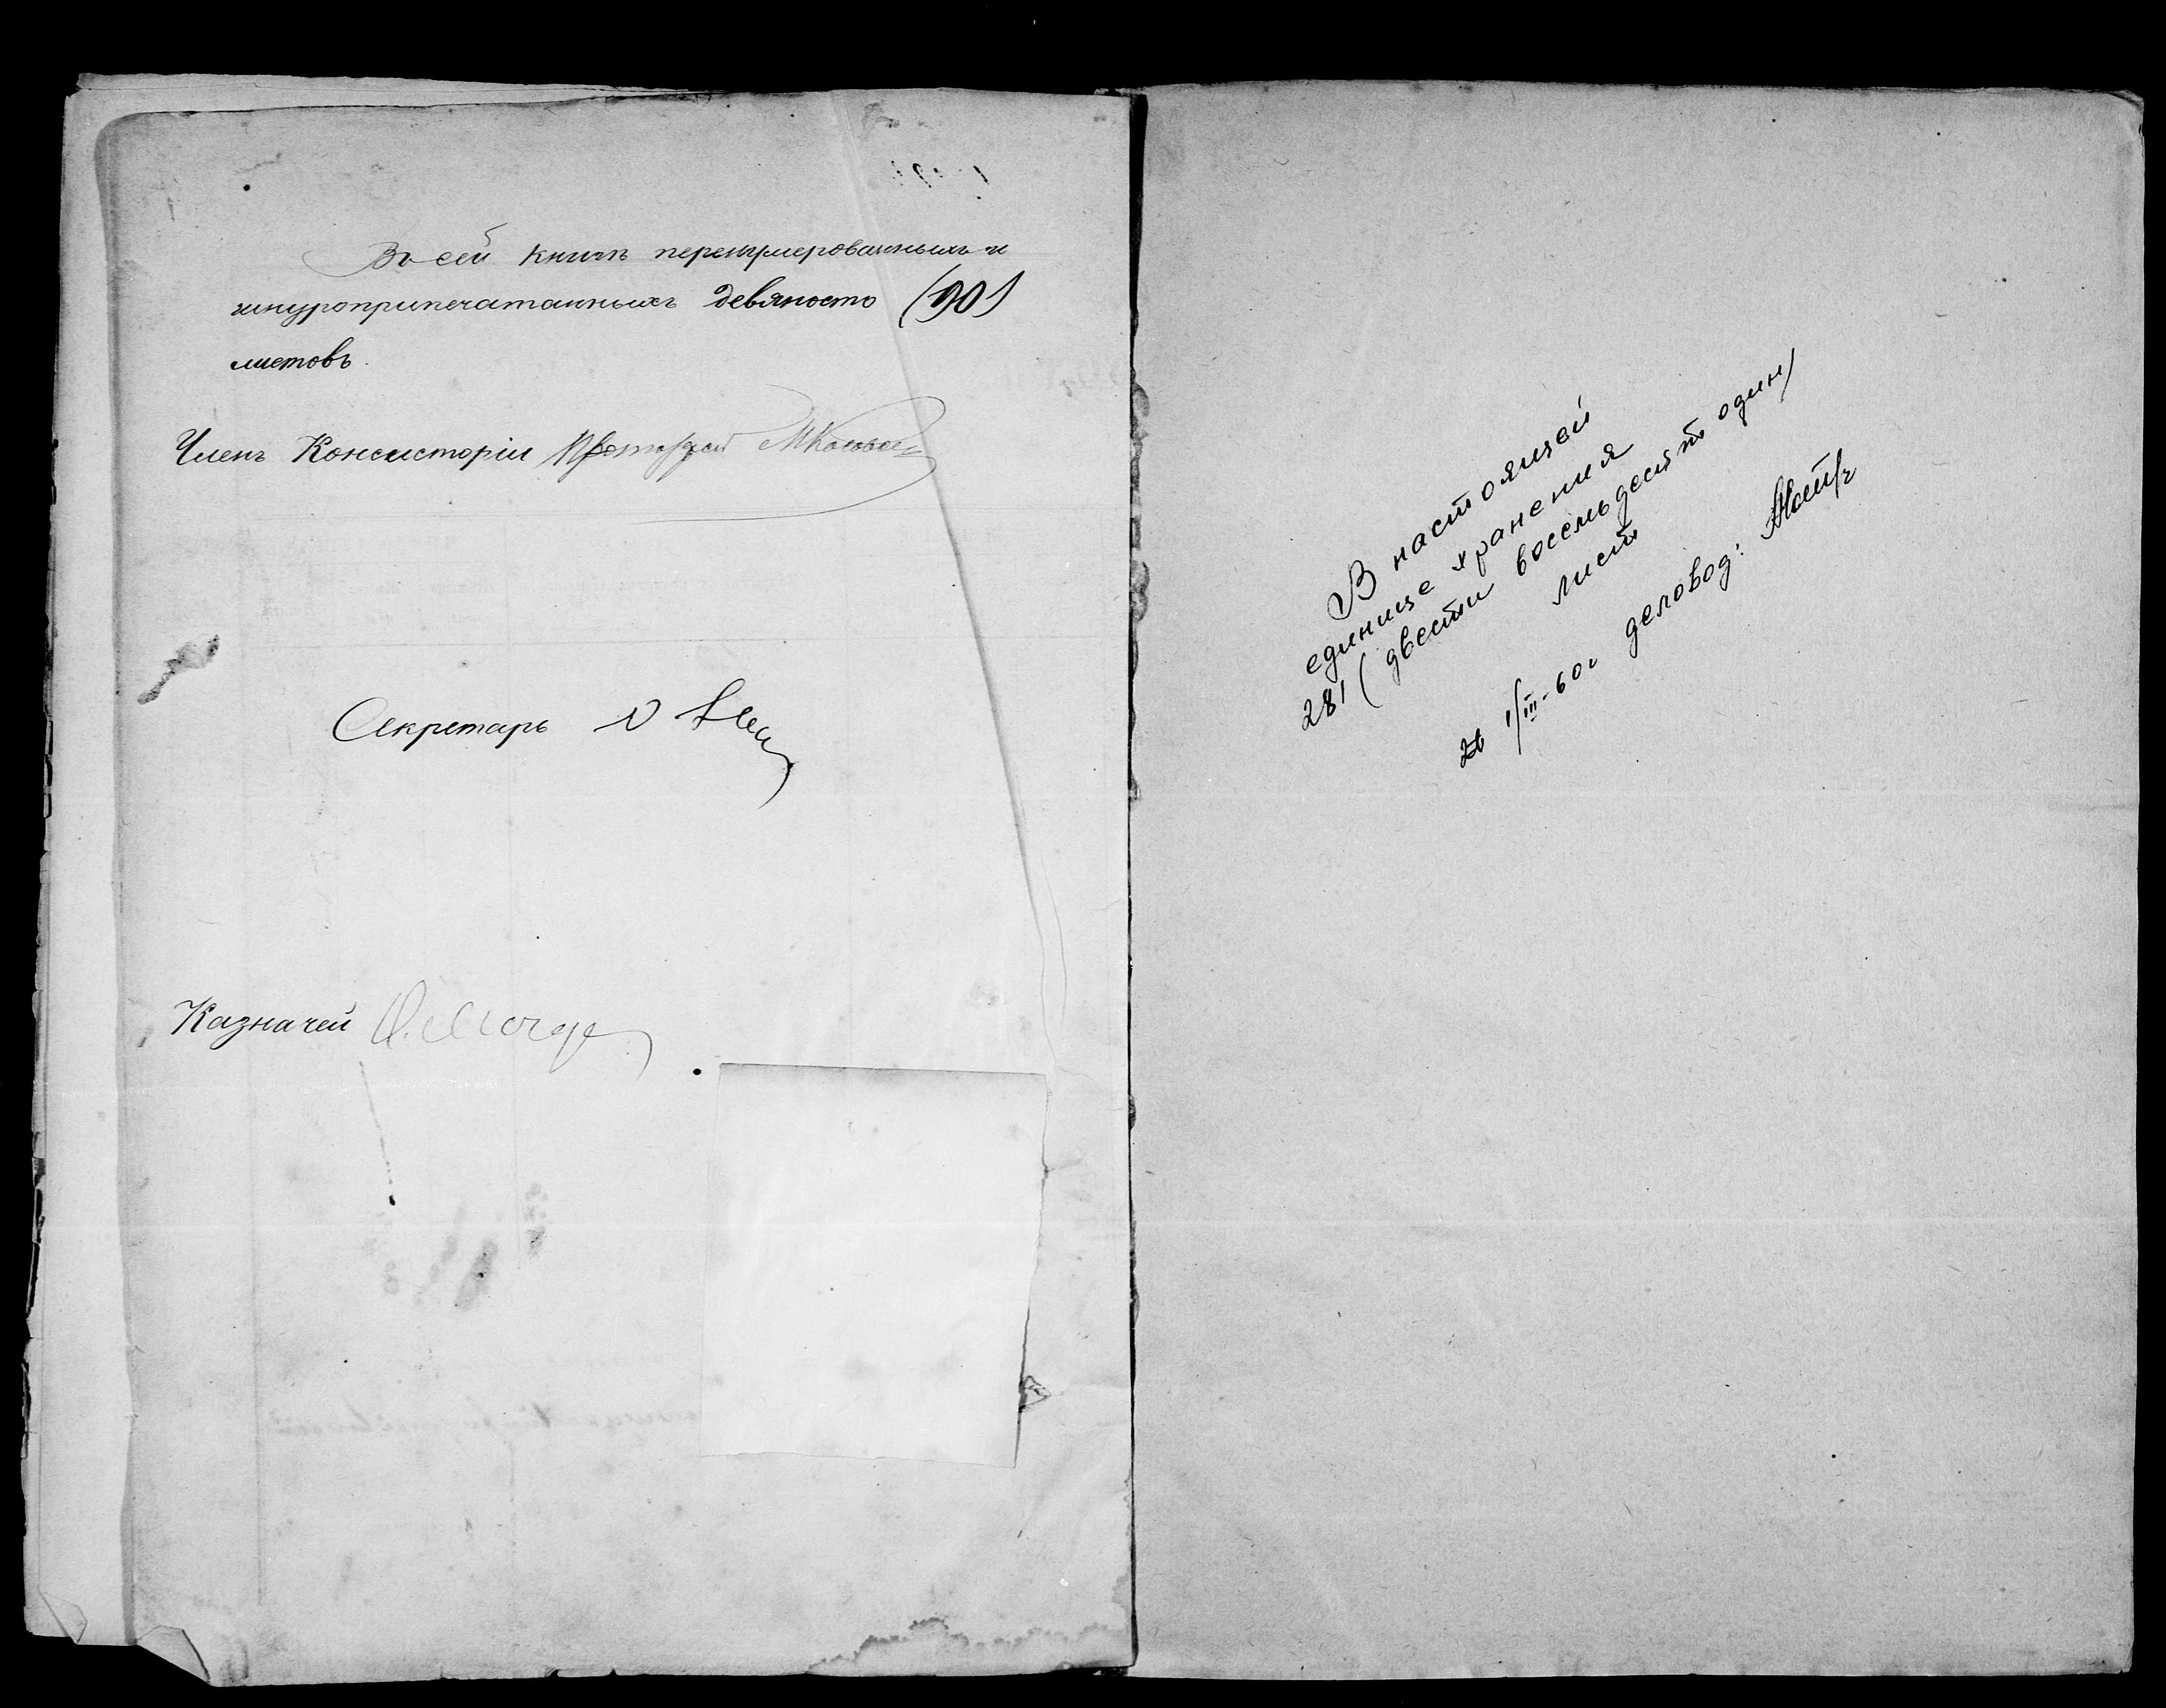 Въ сей книгѣ перенумерованныхъ и
шнуроприпечатанныхъ девяносто (90)
листовъ.
Членъ Консисторіи Протоіерей
Секретарь
Казначей
В настоящей
единице хранения
281 (двести восемьдесят один)
лист
1/III-60г деловод: